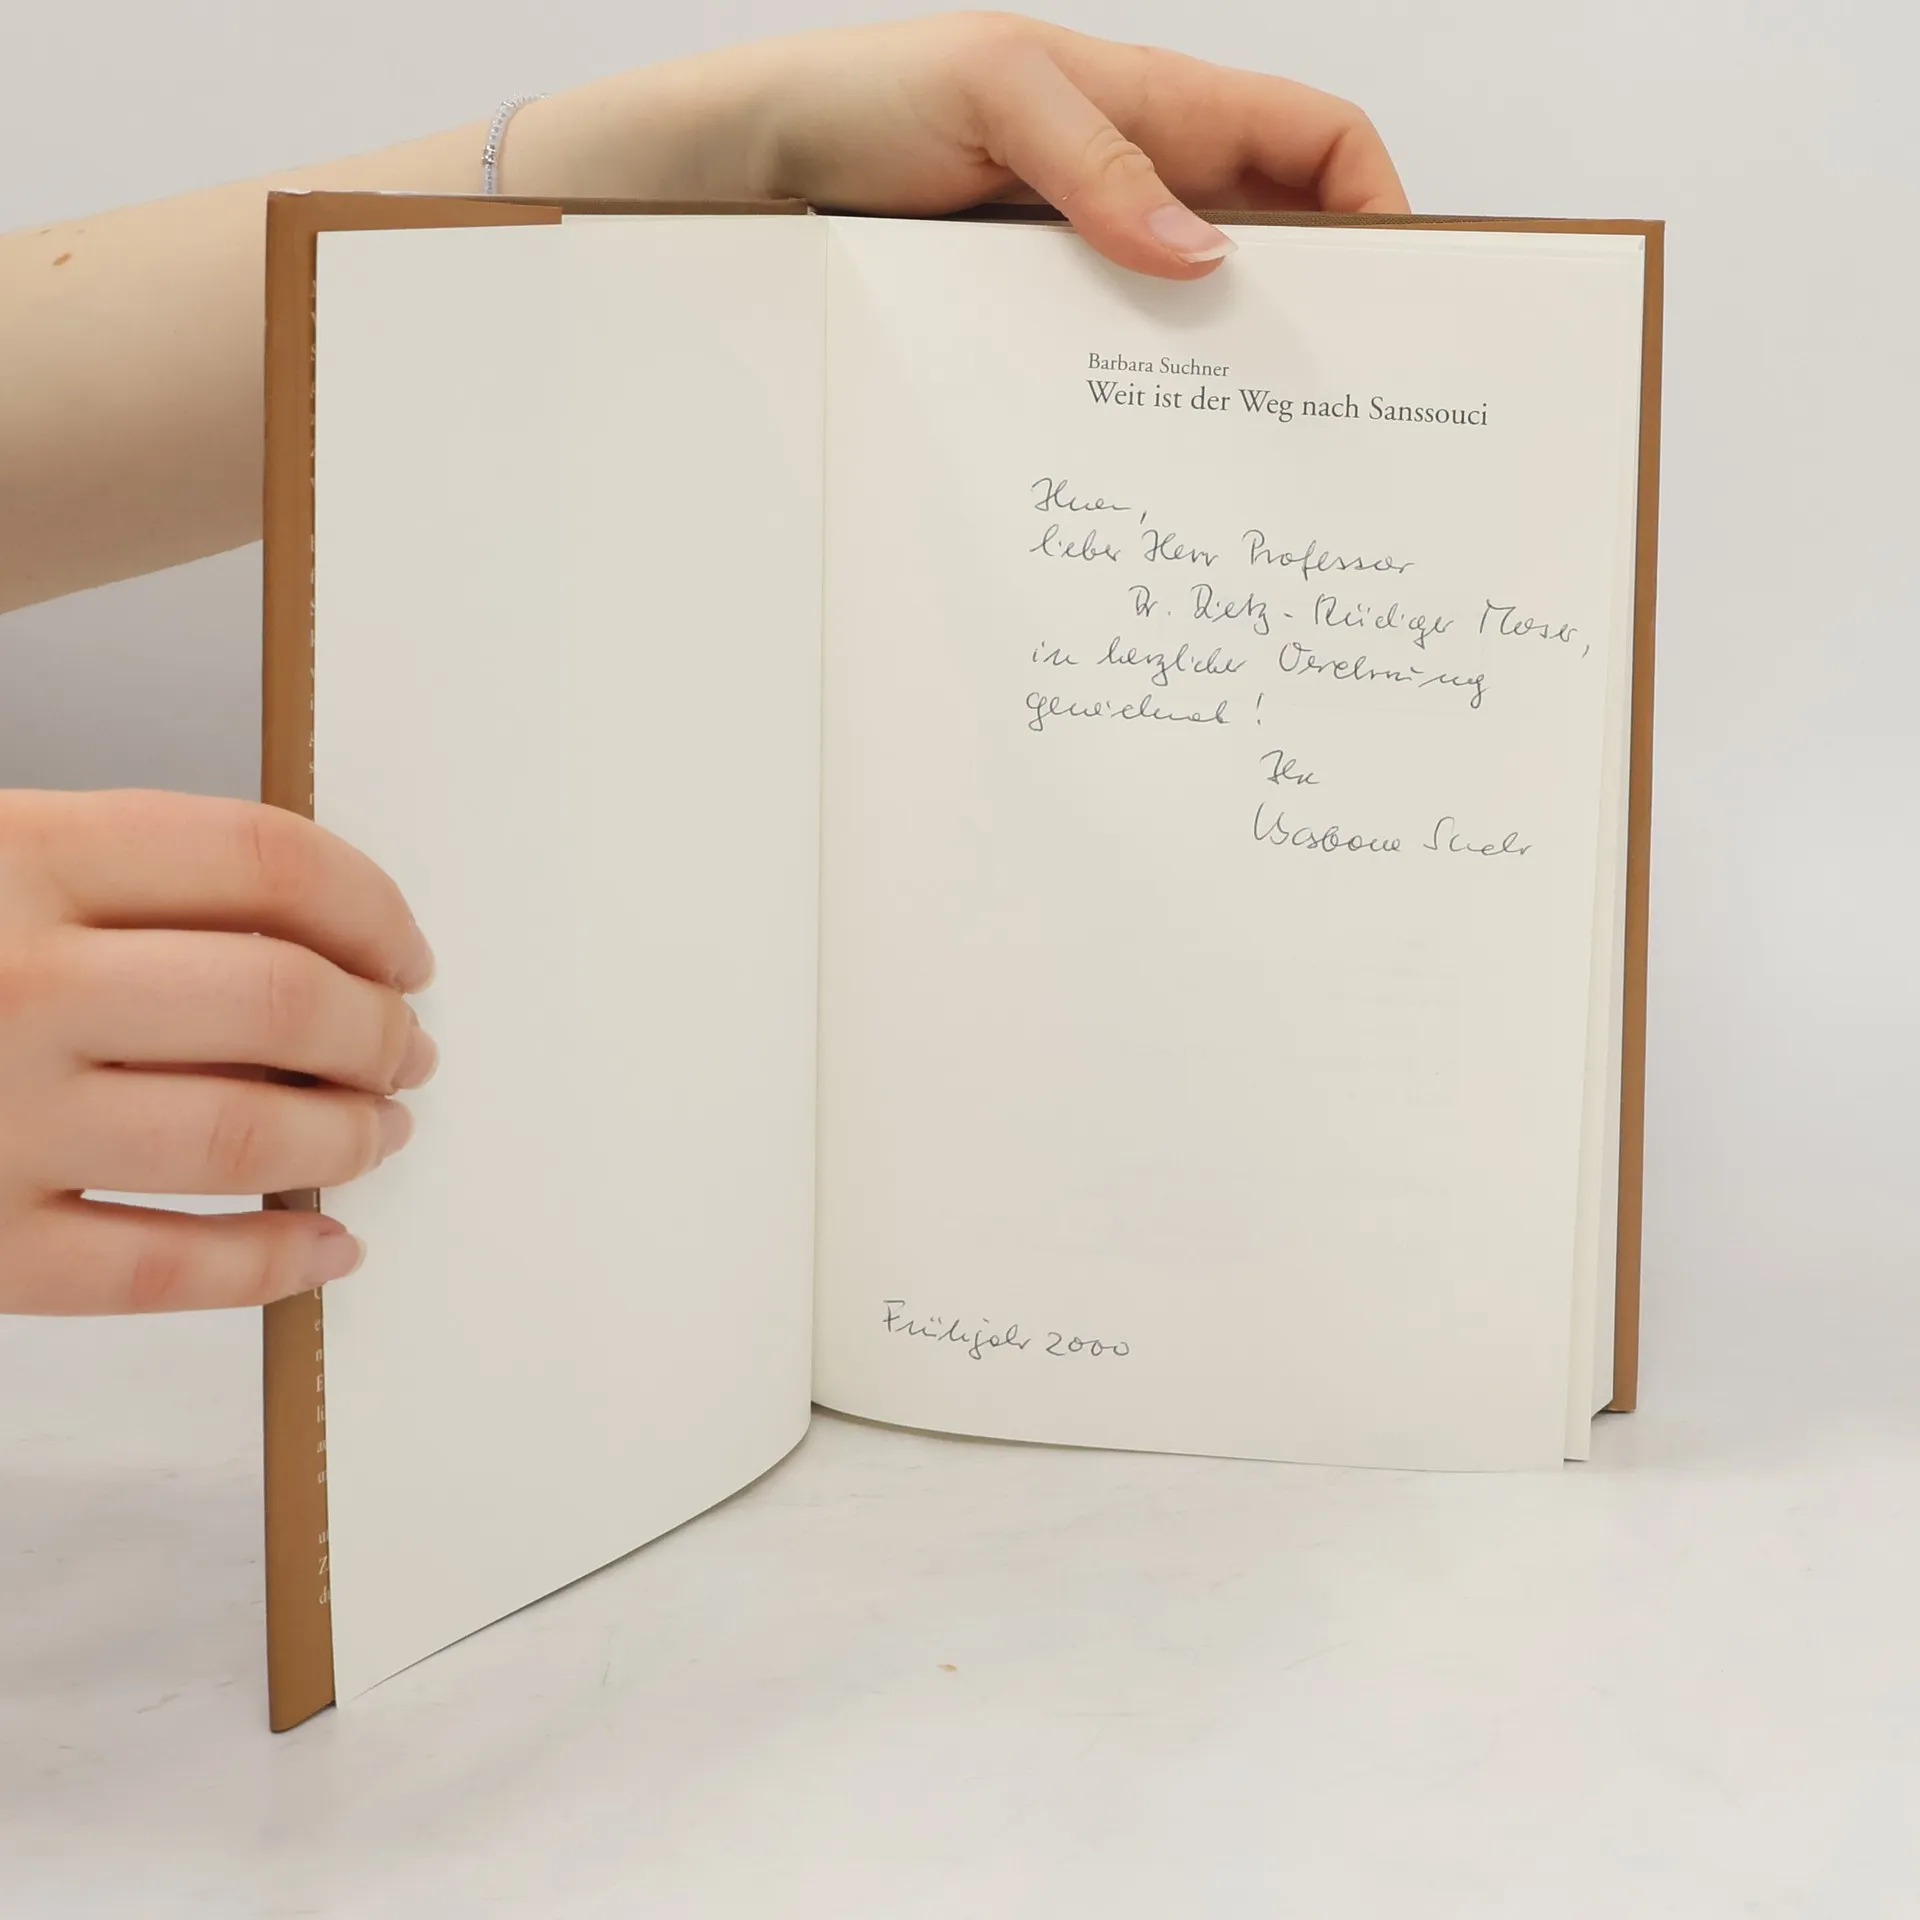 Barbara Suchner
Weit ist der Weg nach Sanssouci
Ihnen,
lieber Herr Professor
Dr. Dietz-Rüdiger Moser,
in herzlicher Verehrung
gewidmet!
Ihre
Barbara Suchner
Frühjahr 2000